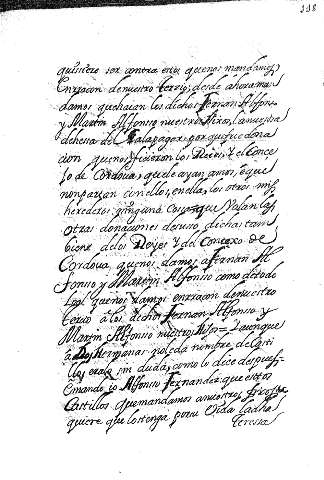 118
quisiere ser contra esto que nos mandamos
en raçon de nuestro tercio; desde ahora man
damos que haian los dichos Fernan Alfonso
y Martin Alfonso nuestros hixos, la nuestra
dehesa del Galapagar, por que fue dona
cion que nos ficieron los Reyes, y el Conce
jo de Cordoua, que le ayan amos, è que
non partan con ellos, en ella, los otros mis
herederos, ninguna cossa, que valan las
otras donaciones de suso dichas tam
bien de los Reyes y del Concexo de
Cordoua, que nos damos a Fernan Al
fonso y Martin Alfonso como de todo
lo al que nos damos en raçon de nuestro
tercio à los dichos Fernan Alfonso y
Martin Alfonso nuestros hijos = y aunque
à Dos Hermanas no le da nombre de casti
llo, era lo sin duda, como lo dice despues:
è mando io Alfonso Fernandez que estos
Castillos que mandamos a nuestros
quiere que los tenga por su vida la dha
Teresa